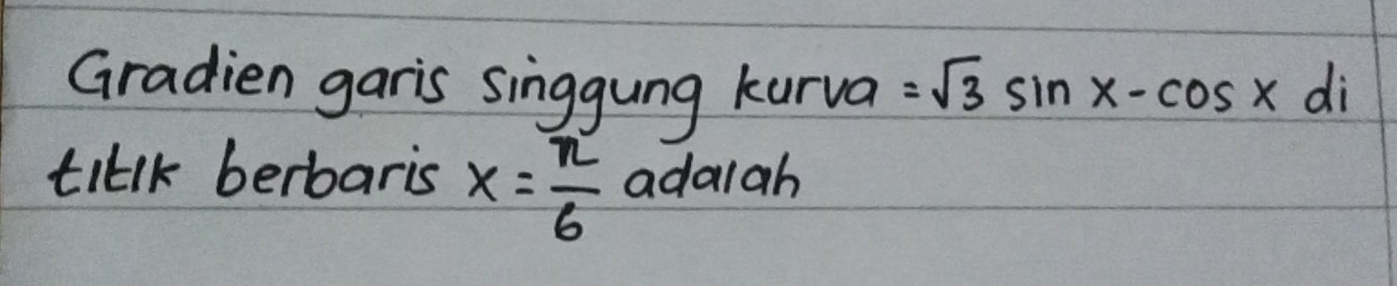 Gradien garis singgung kurva = √3 sin x - cos x di
titik berbaris x = π/6 adalah